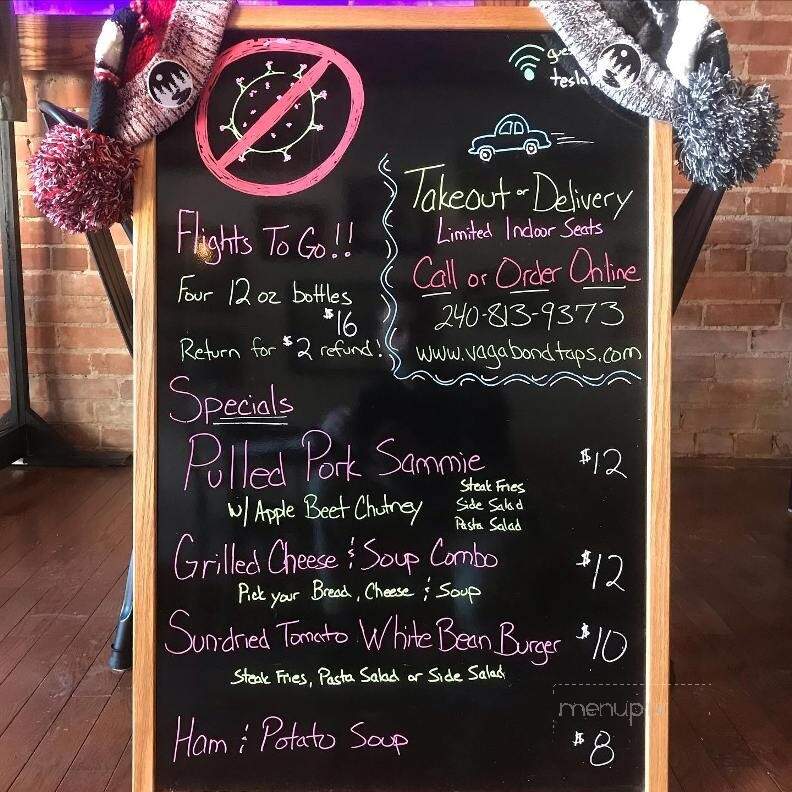 Takeout or Delivery
Limited Indoor Seats
Call or Order Online
240-813-9373
www.vagabondtaps.com
Flights To Go!!
Four 12 oz bottles
$16
Return for $2 refund!
Specials
Pulled Pork Sammie $12
w/ Apple Beet Chutney
Steak Fries
Side Salad
Pasta Salad
Grilled Cheese & Soup Combo $12
Pick your Bread, Cheese & Soup
Sun-dried Tomato White Bean Burger $10
Steak Fries, Pasta Salad or Side Salad
Ham & Potato Soup $8